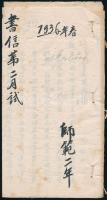 1936年春
書信第二月試
師範二年